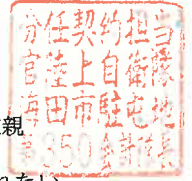 分任契約担当
官陸上自衛隊
海田市駐屯地
350会計隊長
親